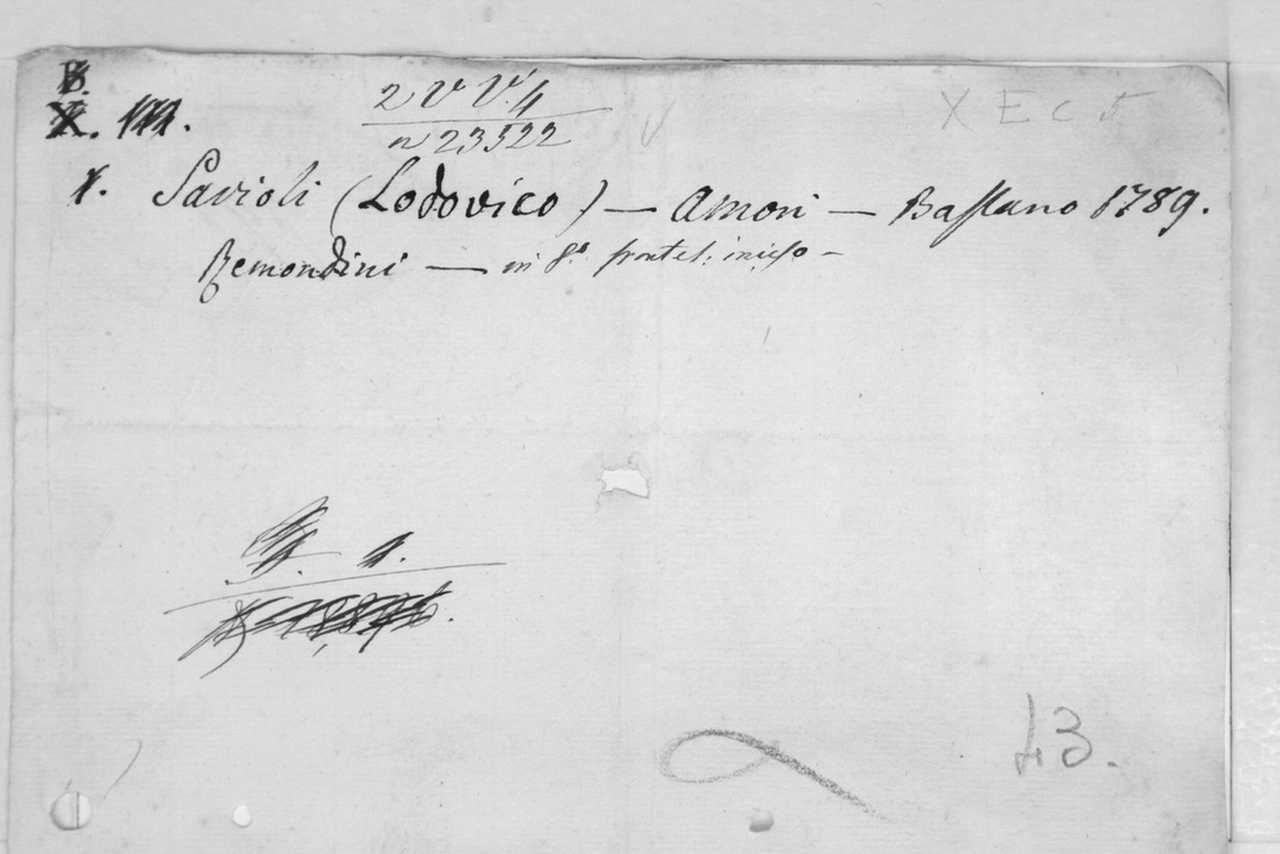 B.
X.
2 V V. 4
n 23522
X E c 5
1. Savioli (Lodovico) — Amori — Bassano 1789.
Remondini — in 8.o frontesp. inciso —
1.
43.